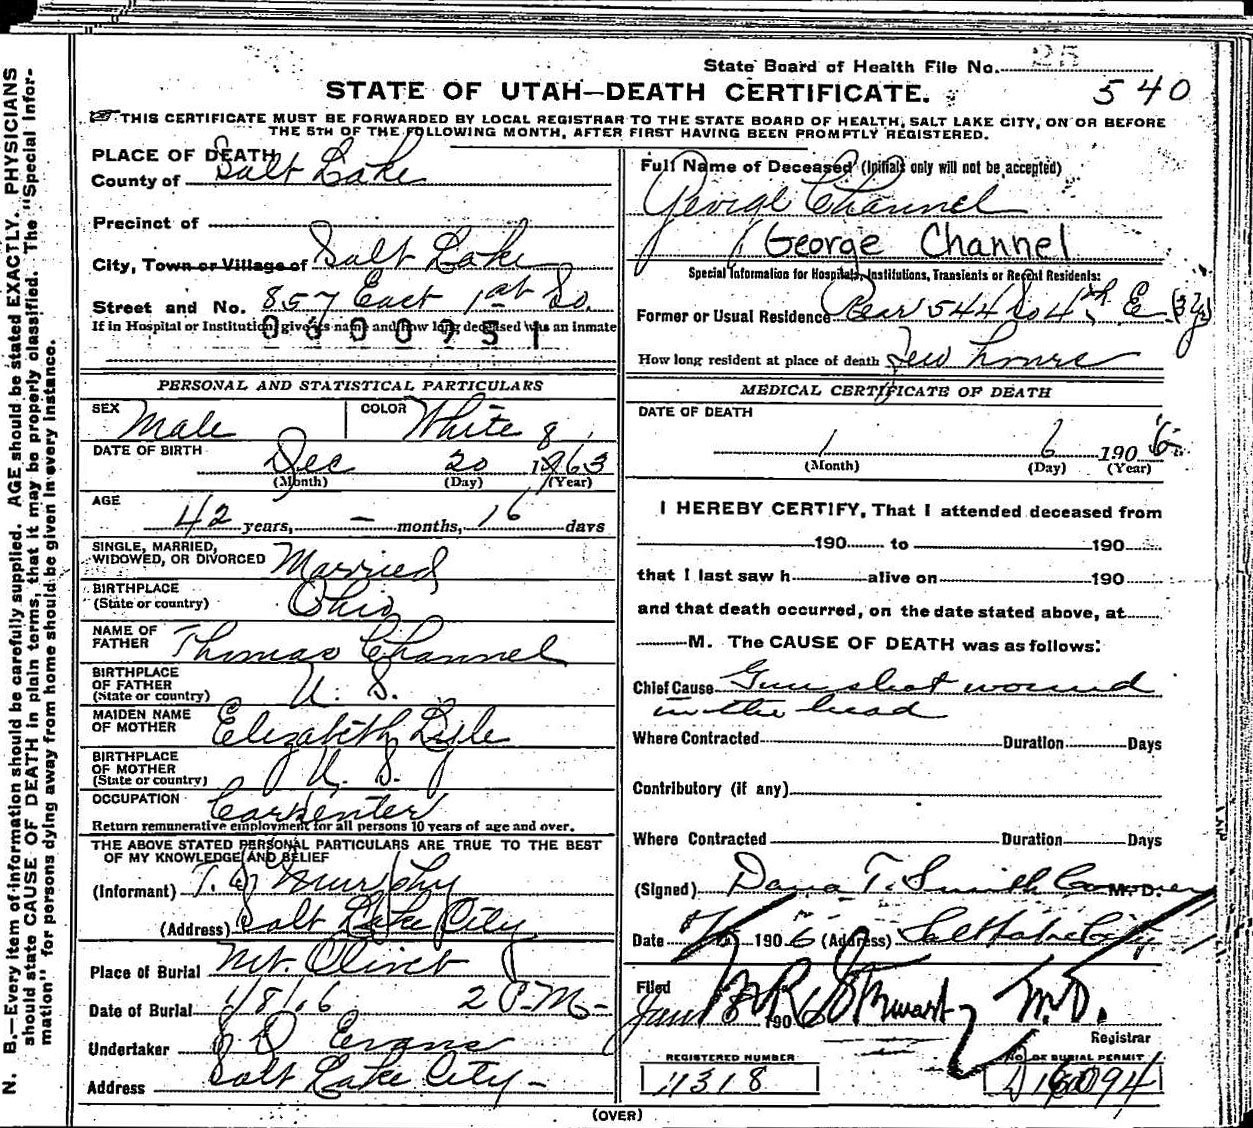 State Board of Health File No. 25
540
STATE OF UTAH—DEATH CERTIFICATE.
THIS CERTIFICATE MUST BE FORWARDED BY LOCAL REGISTRAR TO THE STATE BOARD OF HEALTH, SALT LAKE CITY, ON OR BEFORE
THE 5TH OF THE FOLLOWING MONTH, AFTER FIRST HAVING BEEN PROMPTLY REGISTERED.
N. B.—Every item of information should be carefully supplied. AGE should be stated EXACTLY. PHYSICIANS
should state CAUSE OF DEATH in plain terms, that it may be properly classified. The "Special Infor-
mation" for persons dying away from home should be given in every instance.
PLACE OF DEATH
County of Salt Lake
Precinct of
City, Town or Village of Salt Lake
Street and No. 857 East 1st So.
If in Hospital or Institution, give its name and how long deceased was an inmate
0600751
PERSONAL AND STATISTICAL PARTICULARS
SEX Male COLOR White
DATE OF BIRTH Dec 20 1863
(Month) (Day) (Year)
AGE 42 years, — months, 16 days
SINGLE, MARRIED,
WIDOWED, OR DIVORCED Married
BIRTHPLACE
(State or country) Ohio
NAME OF
FATHER Thomas Channel
BIRTHPLACE
OF FATHER
(State or country) U. S.
MAIDEN NAME
OF MOTHER Elizabeth Lyle
BIRTHPLACE
OF MOTHER
(State or country) U. S.
OCCUPATION Carpenter
Return remunerative employment for all persons 10 years of age and over.
THE ABOVE STATED PERSONAL PARTICULARS ARE TRUE TO THE BEST
OF MY KNOWLEDGE AND BELIEF
(Informant) Murphy
(Address) Salt Lake City
Place of Burial Mt. Olivet
Date of Burial 1/8/06 2 P.M.
Undertaker Evans
Address Salt Lake City
Full Name of Deceased (Initials only will not be accepted)
George Channel
George Channel
Special Information for Hospitals, Institutions, Transients or Recent Residents:
Former or Usual Residence Rear 544 So 4th E (3 yr)
How long resident at place of death few hours
MEDICAL CERTIFICATE OF DEATH
DATE OF DEATH
1 6 1906
(Month) (Day) (Year)
I HEREBY CERTIFY, That I attended deceased from
190 to 190
that I last saw h alive on 190
and that death occurred, on the date stated above, at
M. The CAUSE OF DEATH was as follows:
Chief Cause Gun shot wound
in the head
Where Contracted Duration Days
Contributory (if any)
Where Contracted Duration Days
(Signed) Dana T. Smith Coroner M. D.
Date 1906 (Address) Salt Lake City
Filed
Jan 8 1906 Stewart M.D.
Registrar
REGISTERED NUMBER
NO. OF BURIAL PERMIT
(OVER)